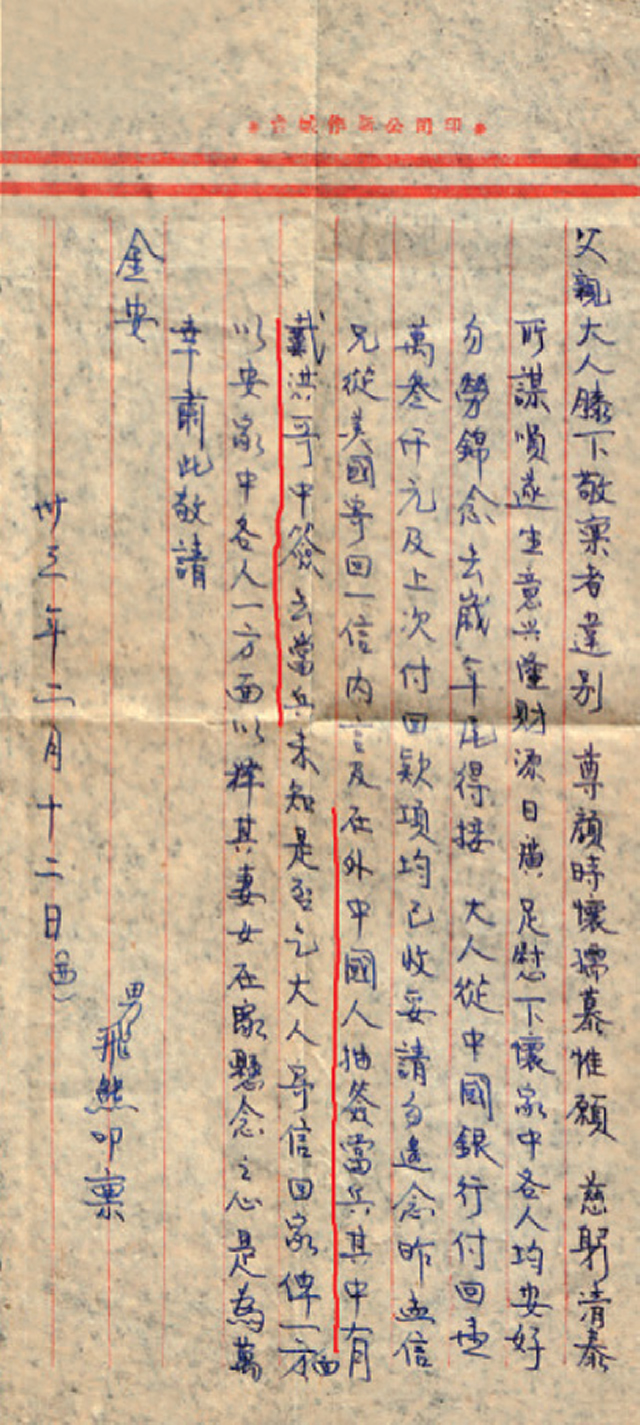 印司公作城台
父親大人膝下敬稟者違別　尊顏時懷孺慕惟願　慈躬清泰
所謀順遂生意兴隆財源日廣足慰下懷家中各人均安好
勿勞錦念去歲年尾得接　大人從中國銀行付回壹
萬叁仟元及上次付回款項均已收妥請勿遠念昨孟信
兄從美國寄回一信内言及在外中國人抽签當兵其中有
戴洪哥中簽去當兵未知是否乞大人寄信回家俾一方面
以安家中各人一方面以釋其妻女在家懸念之心是為萬
幸肅此敬請
金安
男飛熊叩稟
卅三年二月十二日